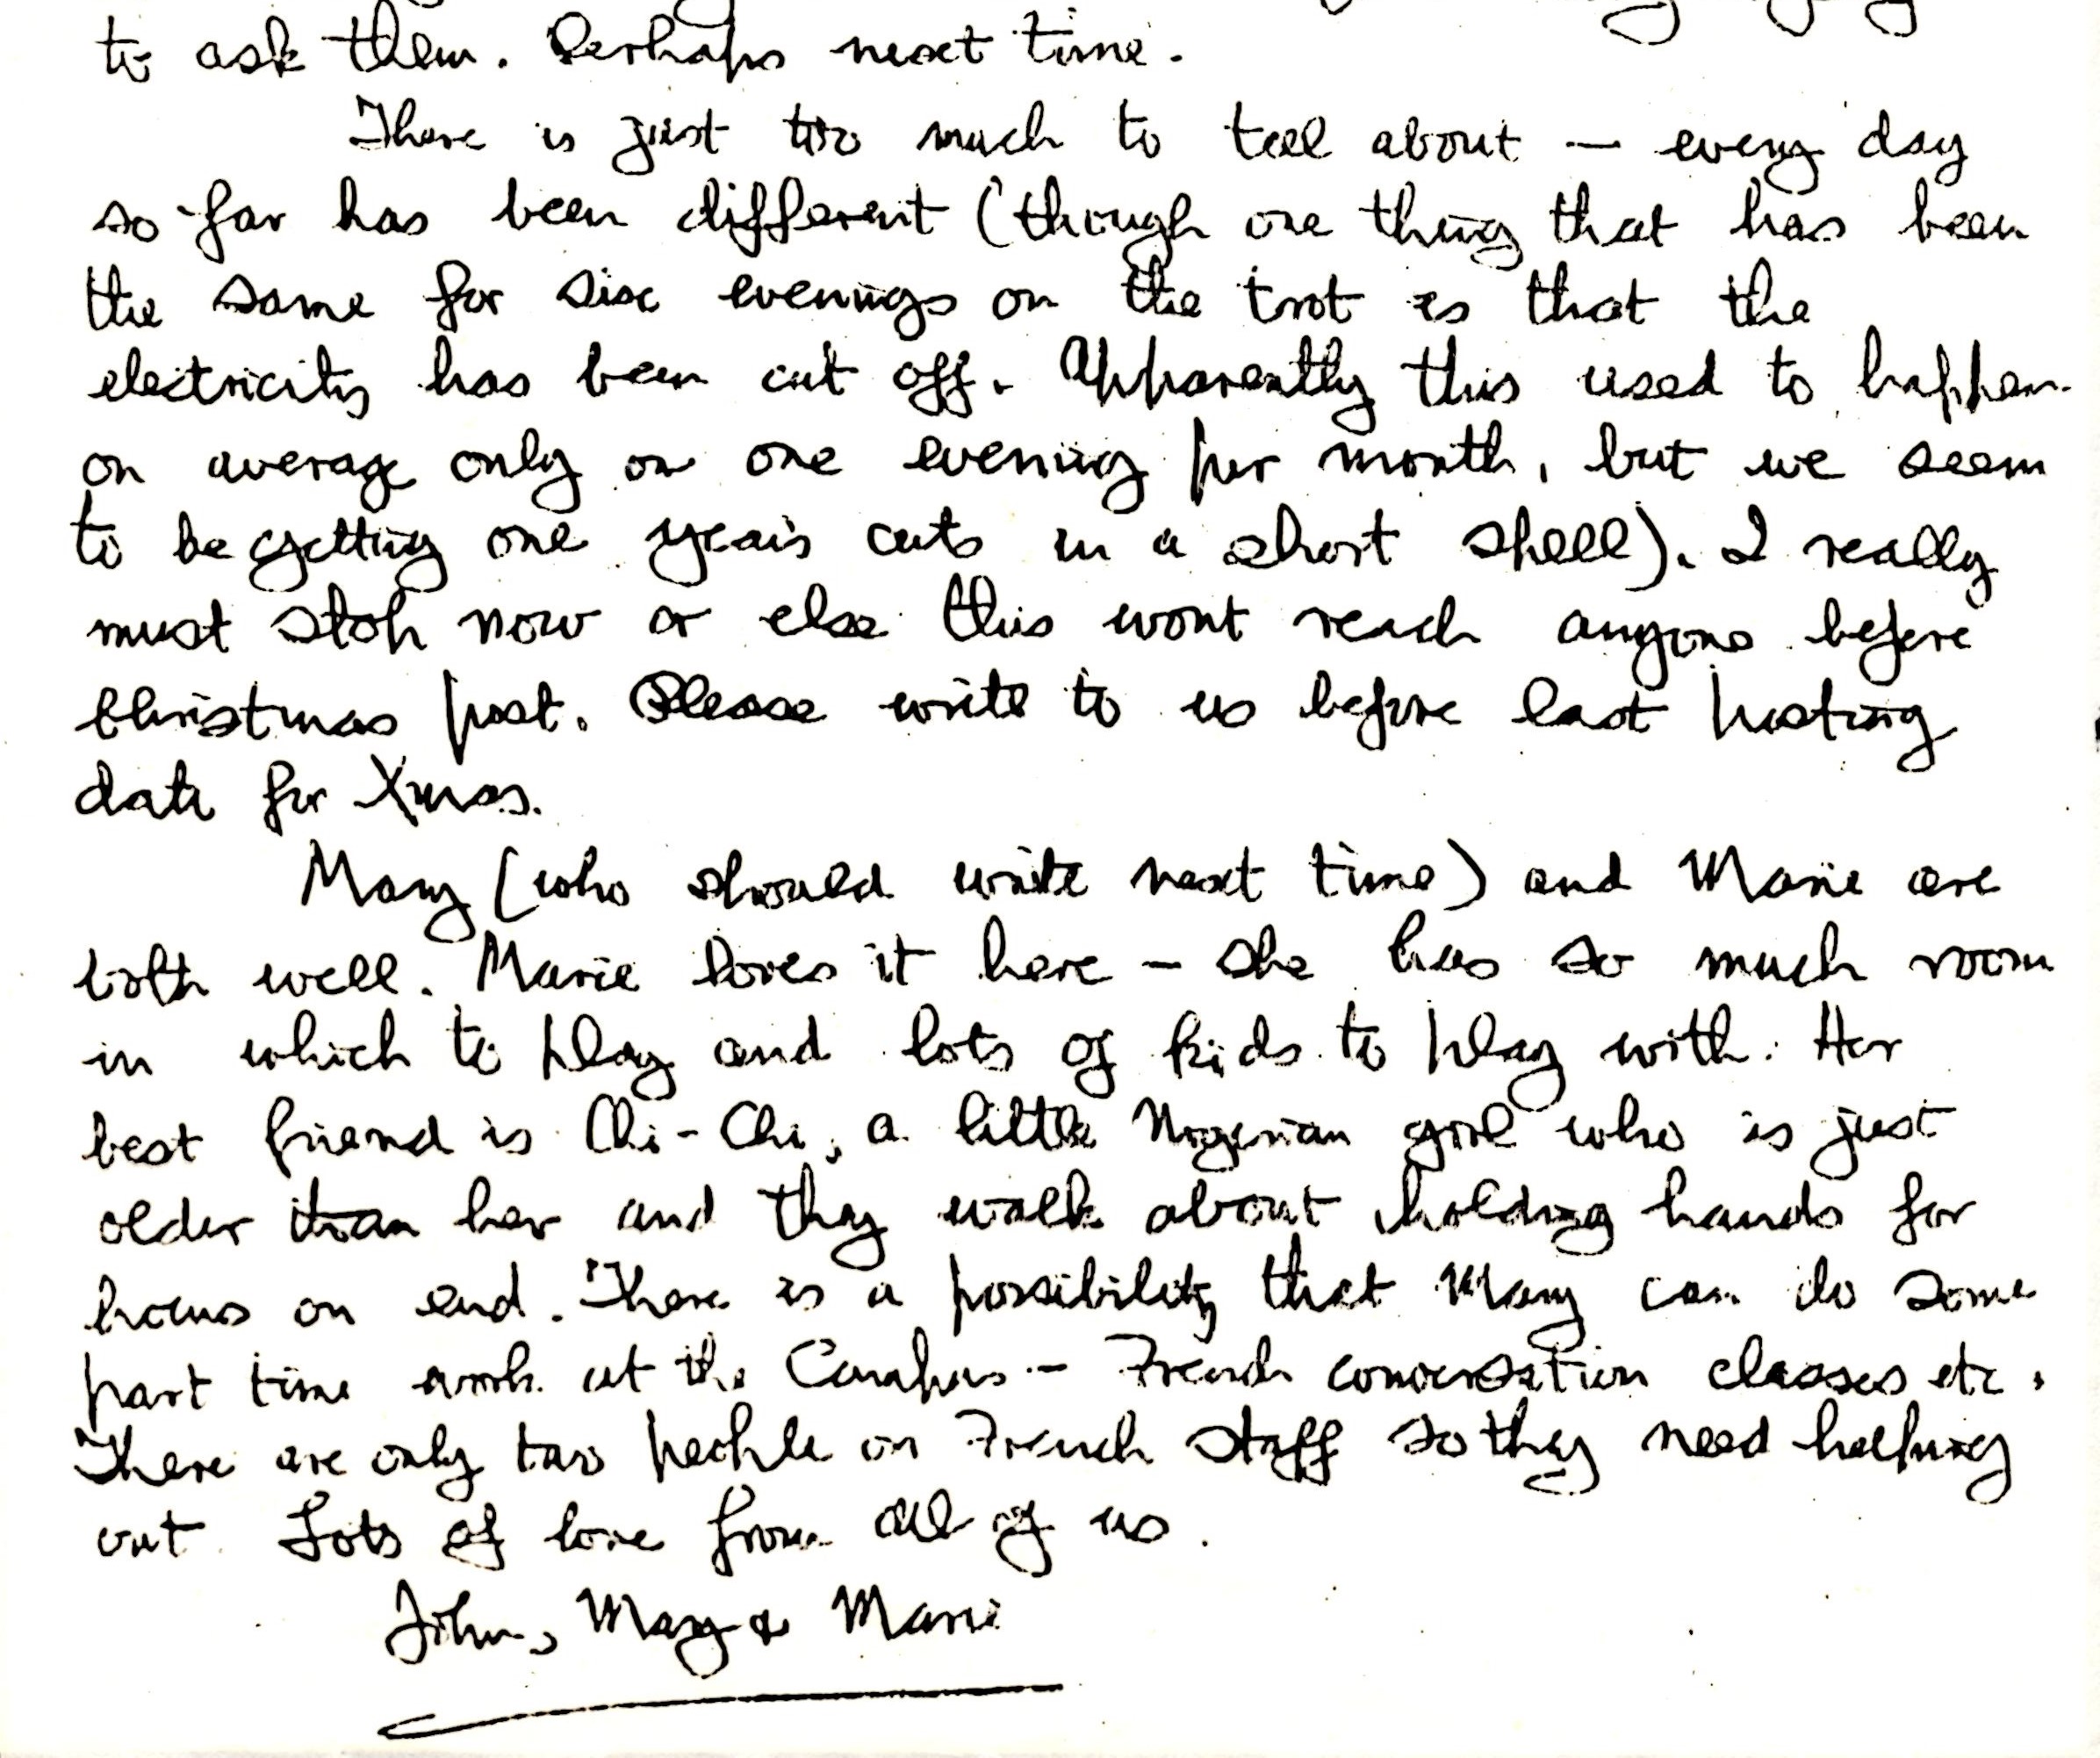 to ask them. Perhaps next time.
There is just too much to tell about – every day
so far has been different (though one thing that has been
the same for six evenings on the trot is that the
electricity has been cut off. Apparently this used to happen
on average only on one evening per month, but we seem
to be getting one years cuts in a short spell). I really
must stop now or else this wont reach anyone before
Christmas post. Please write to us before last posting
date for Xmas.
Mary (who should write next time) and Marie are
both well. Marie loves it here – she has so much room
in which to play and lots of kids to play with. Her
best friend is Chi-Chi, a little Nigerian girl who is just
older than her and they walk about holding hands for
hours on end. There is a possibility that Mary can do some
part time work at the Campus – French conversation classes etc.
There are only two people on French staff so they need helping
out. Lots of love from all of us.
John, Mary & Marie